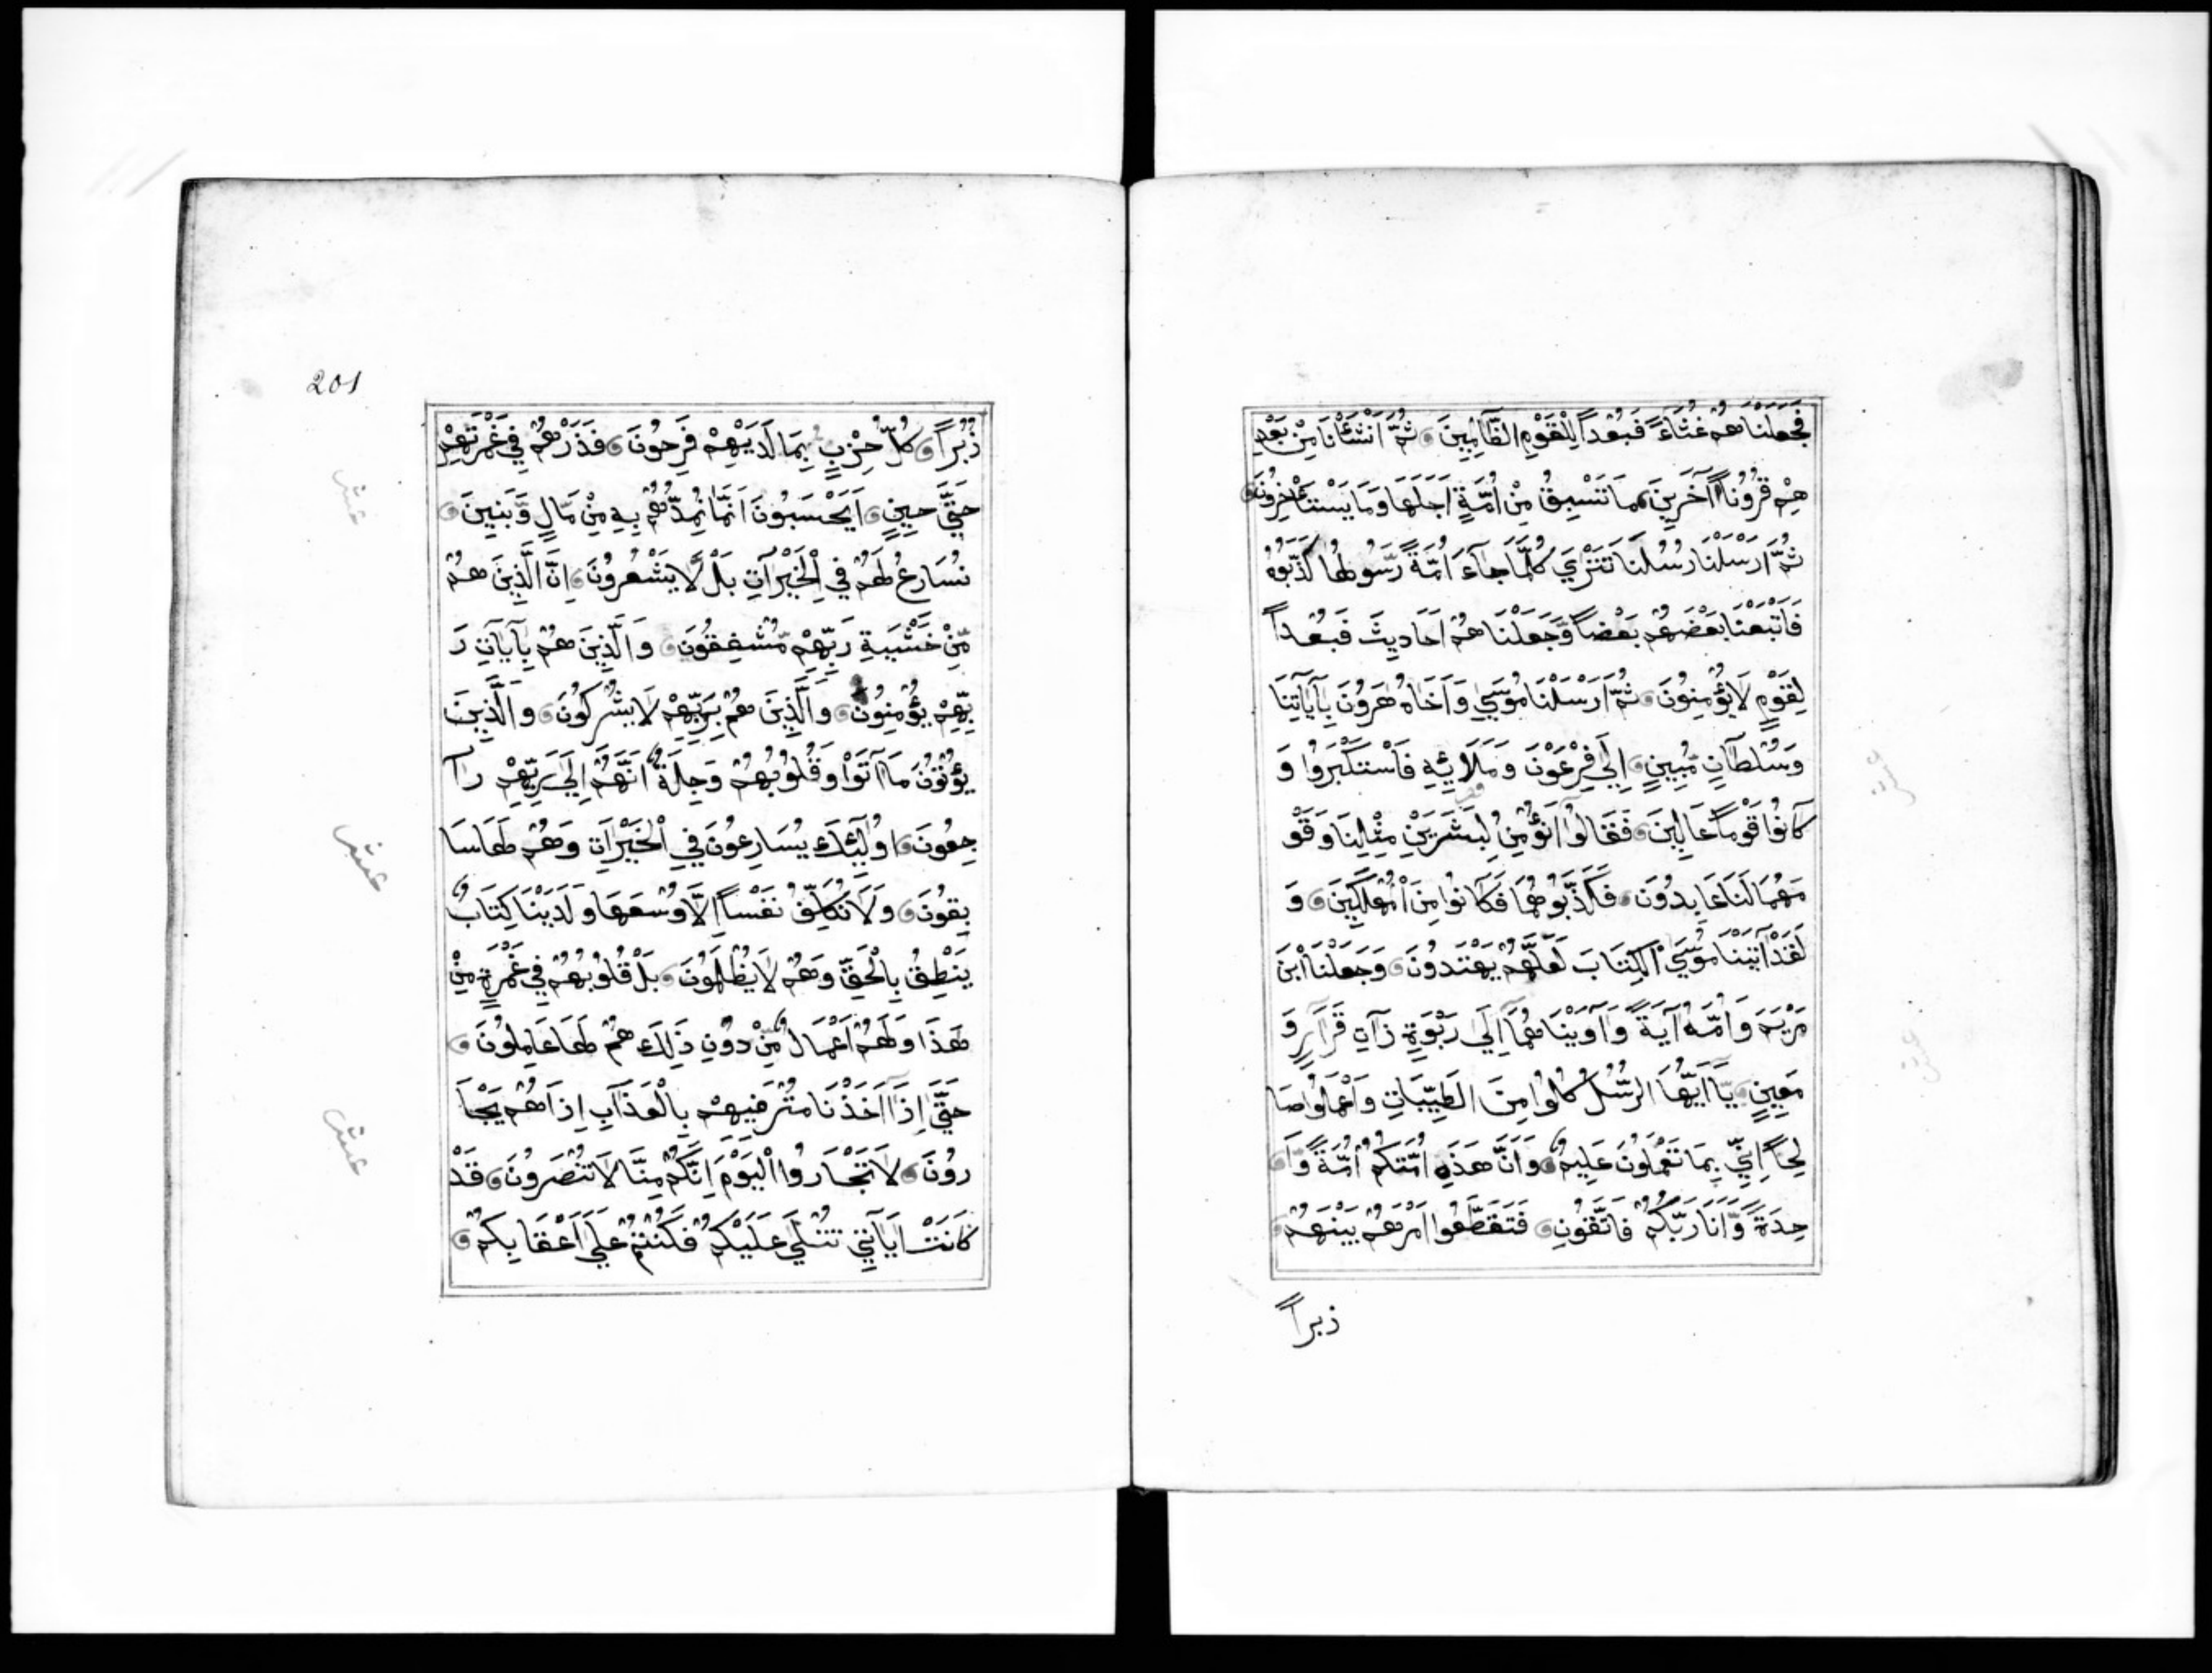 فَجَعَلْنَاهُمْ غُثَاءً فَبُعْداً لِلْقَوْمِ الظَّالِمِينَ ثُمَّ اَنْشَأْنَا مِنْ بَعْدِ
هِمْ قُرُوناً آخَرِينَ مَا تَسْبِقُ مِنْ اُمَّةٍ اَجَلَهَا وَمَا يَسْتَأْخِرُونَ
ثُمَّ اَرْسَلْنَا رُسُلَنَا تَتْرَي كُلَّمَا جَآءَ اُمَّةً رَسُولُهَا كَذَّبُوهُ
فَاَتْبَعْنَا بَعْضَهُمْ بَعْضاً وَّجَعَلْنَاهُمْ اَحَادِيثَ فَبُعْداً
لِقَوْمٍ لَا يُؤْمِنُونَ ثُمَّ اَرْسَلْنَا مُوسَي وَاَخَاهُ هَرُونَ بِآيَاتِنَا
وَسُلْطَانٍ مُّبِينٍ اِلَي فِرْعَوْنَ وَمَلَائِهِ فَاسْتَكْبَرُوا وَ
كَانُوا قَوْماً عَالِينَ فَقَالُوا اَنُؤْمِنُ لِبَشَرَيْنِ مِثْلِنَا وَقَوْ
مَهُمَا لَنَا عَابِدُونَ فَكَذَّبُوهُمَا فَكَانُوا مِنَ الْمُهْلَكِينَ وَ
لَقَدْ آتَيْنَا مُوسَي الْكِتَابَ لَعَلَّهُمْ يَهْتَدُونَ وَجَعَلْنَا ابْنَ
مَرْيَمَ وَاُمَّهُ آيَةً وَآوَيْنَاهُمَا اِلَي رَبْوَةٍ ذَاتِ قَرَارٍ وَ
مَعِينٍ يَا اَيُّهَا الرُّسُلُ كُلُوا مِنَ الطَّيِّبَاتِ وَاعْمَلُوا صَا
لِحاً اِنِّي بِمَا تَعْمَلُونَ عَلِيمٌ وَاَنَّ هَذِهِ اُمَّتُكُمْ اُمَّةً وَّا
حِدَةً وَّاَنَا رَبُّكُمْ فَاتَّقُونِ فَتَقَطَّعُوا اَمْرَهُمْ بَيْنَهُمْ
زبراً
201
زُبُراً كُلُّ حِزْبٍ بِمَا لَدَيْهِمْ فَرِحُونَ فَذَرْهُمْ فِي غَمْرَتِهِمْ
حَتَّي حِينٍ اَيَحْسَبُونَ اَنَّمَا نُمِدُّهُمْ بِهِ مِنْ مَّالٍ وَّبَنِينَ
نُسَارِعُ لَهُمْ فِي الْخَيْرَاتِ بَلْ لَّا يَشْعُرُونَ اِنَّ الَّذِينَ هُمْ
مِّنْ خَشْيَةِ رَبِّهِمْ مُّشْفِقُونَ وَالَّذِينَ هُمْ بِآيَاتِ رَ
بِّهِمْ يُؤْمِنُونَ وَالَّذِينَ هُمْ بِرَبِّهِمْ لَا يُشْرِكُونَ وَالَّذِينَ
يُؤْتُونَ مَا آتَوْا وَقُلُوبُهُمْ وَجِلَةٌ اَنَّهُمْ اِلَي رَبِّهِمْ رَا
جِعُونَ اُولَئِكَ يُسَارِعُونَ فِي الْخَيْرَاتِ وَهُمْ لَهَا سَا
بِقُونَ وَلَا نُكَلِّفُ نَفْساً اِلَّا وُسْعَهَا وَلَدَيْنَا كِتَابٌ
يَنْطِقُ بِالْحَقِّ وَهُمْ لَا يُظْلَمُونَ بَلْ قُلُوبُهُمْ فِي غَمْرَةٍ مِنْ
هَذَا وَلَهُمْ اَعْمَالٌ مِّنْ دُونِ ذَلِكَ هُمْ لَهَا عَامِلُونَ
حَتَّي اِذَا اَخَذْنَا مُتْرَفِيهِمْ بِالْعَذَابِ اِذَا هُمْ يَجْـَٔا
رُونَ لَا تَجْـَٔارُوا الْيَوْمَ اِنَّكُمْ مِنَّا لَا تُنْصَرُونَ قَدْ
كَانَتْ اٰيَاتِي تُتْلَي عَلَيْكُمْ فَكُنْتُمْ عَلَي اَعْقَابِكُمْ
عشر
عشر
عشر